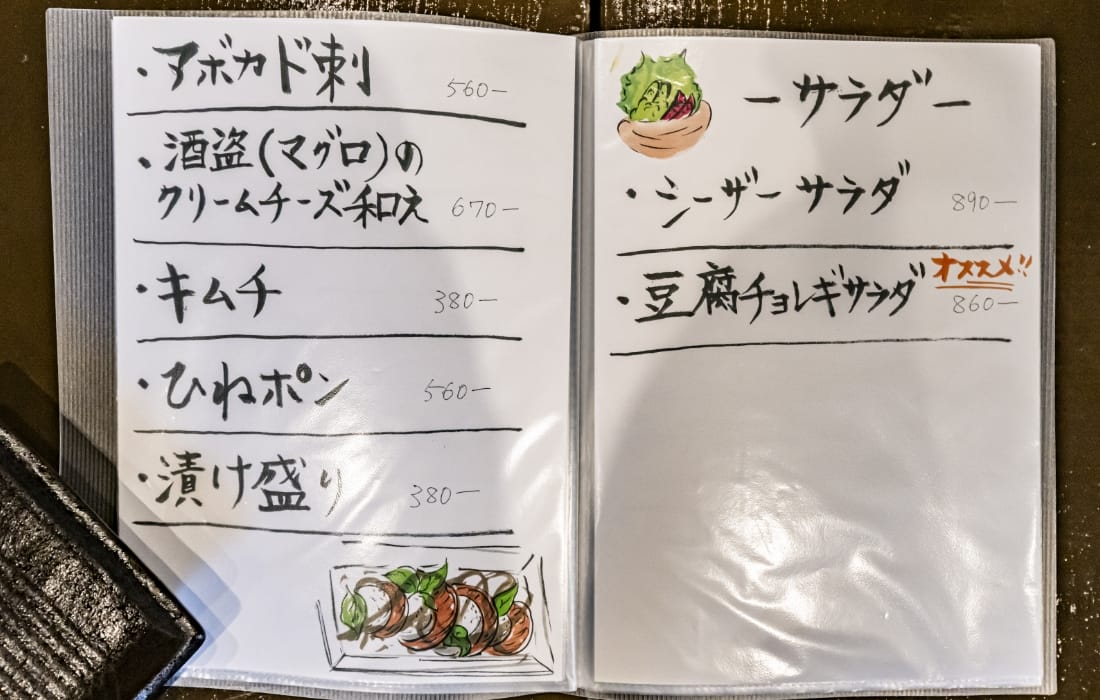 ・アボカド刺 560ー
・酒盗(マグロ)の
クリームチーズ和え 670ー
・キムチ 380ー
・ひねポン 560ー
・漬け盛り 380ー
ーサラダー
・シーザーサラダ 890ー
オススメ!!
・豆腐チョレギサラダ 860ー